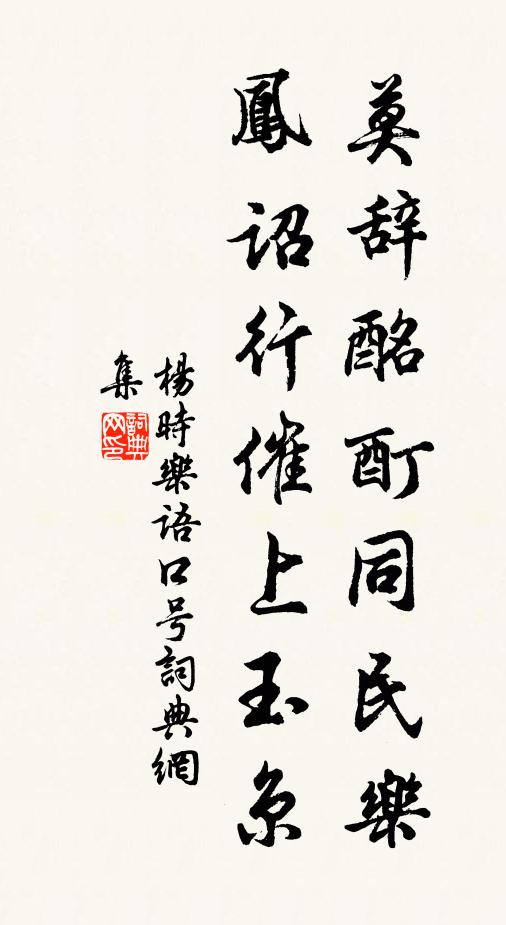 莫辞酩酊同民樂
鳳詔行催上玉京
楊時樂语口号詞典網
集
詞典
网印